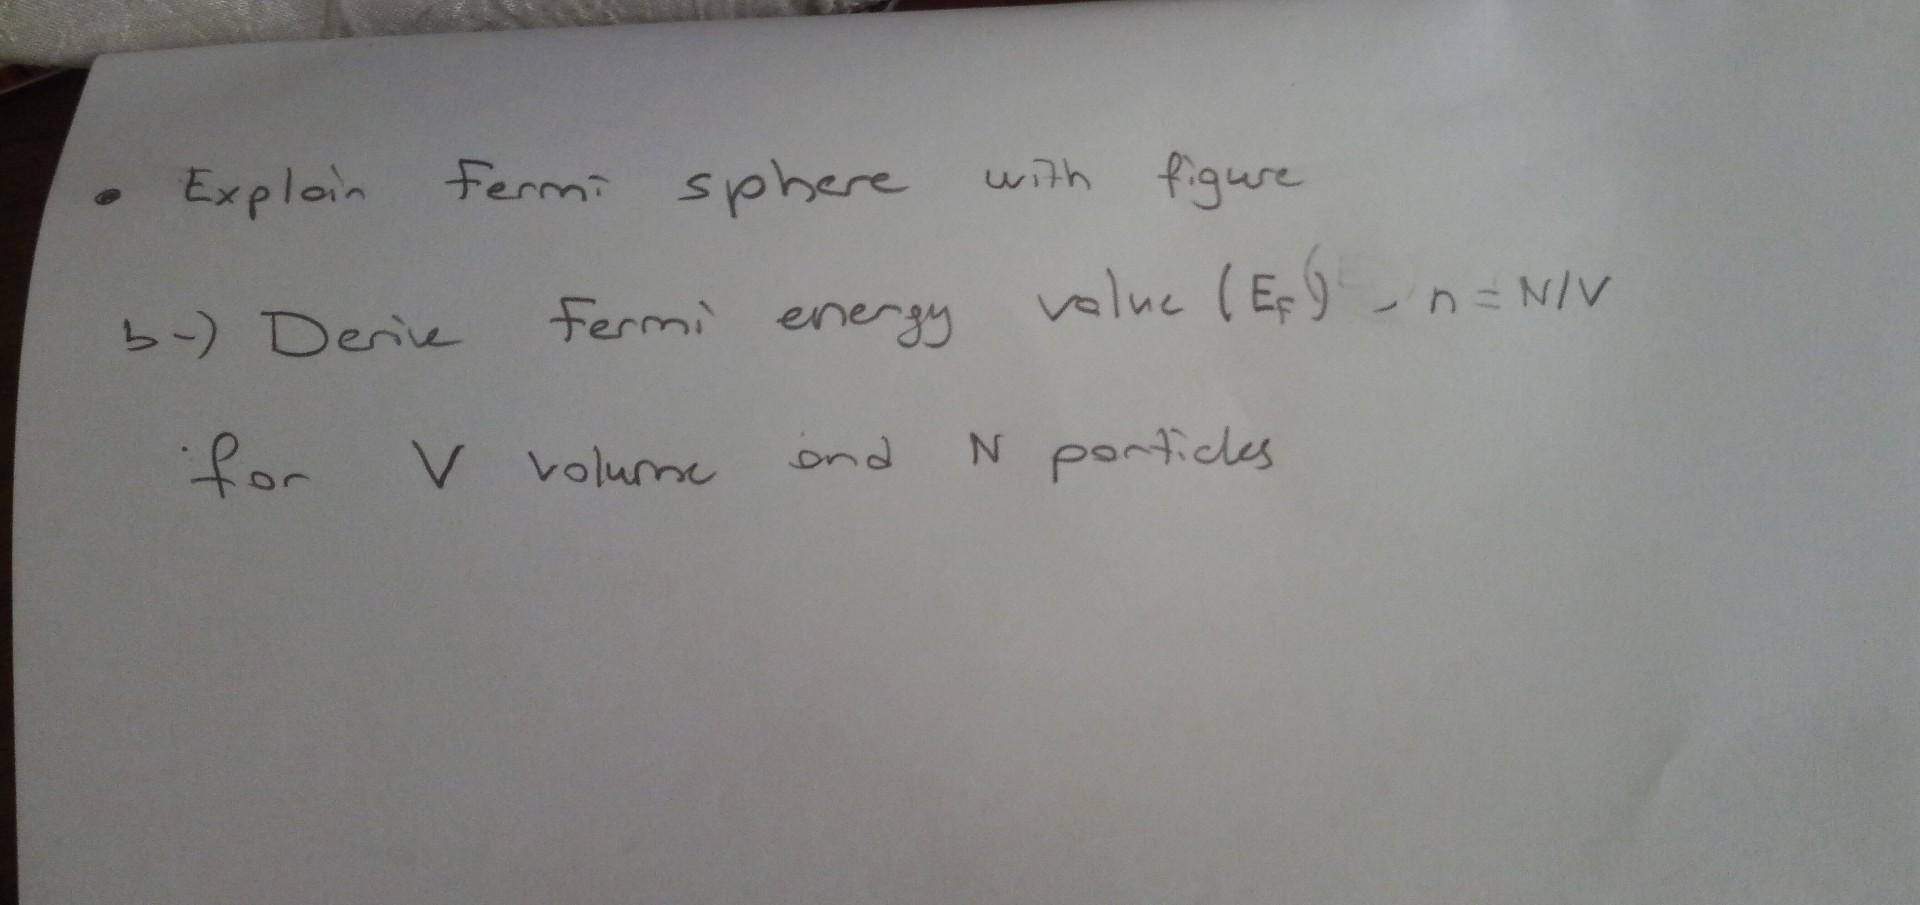 • Explain Fermi sphere with figure
b-) Derive Fermi energy value (EF) - n = N/V
for V volume and N particles